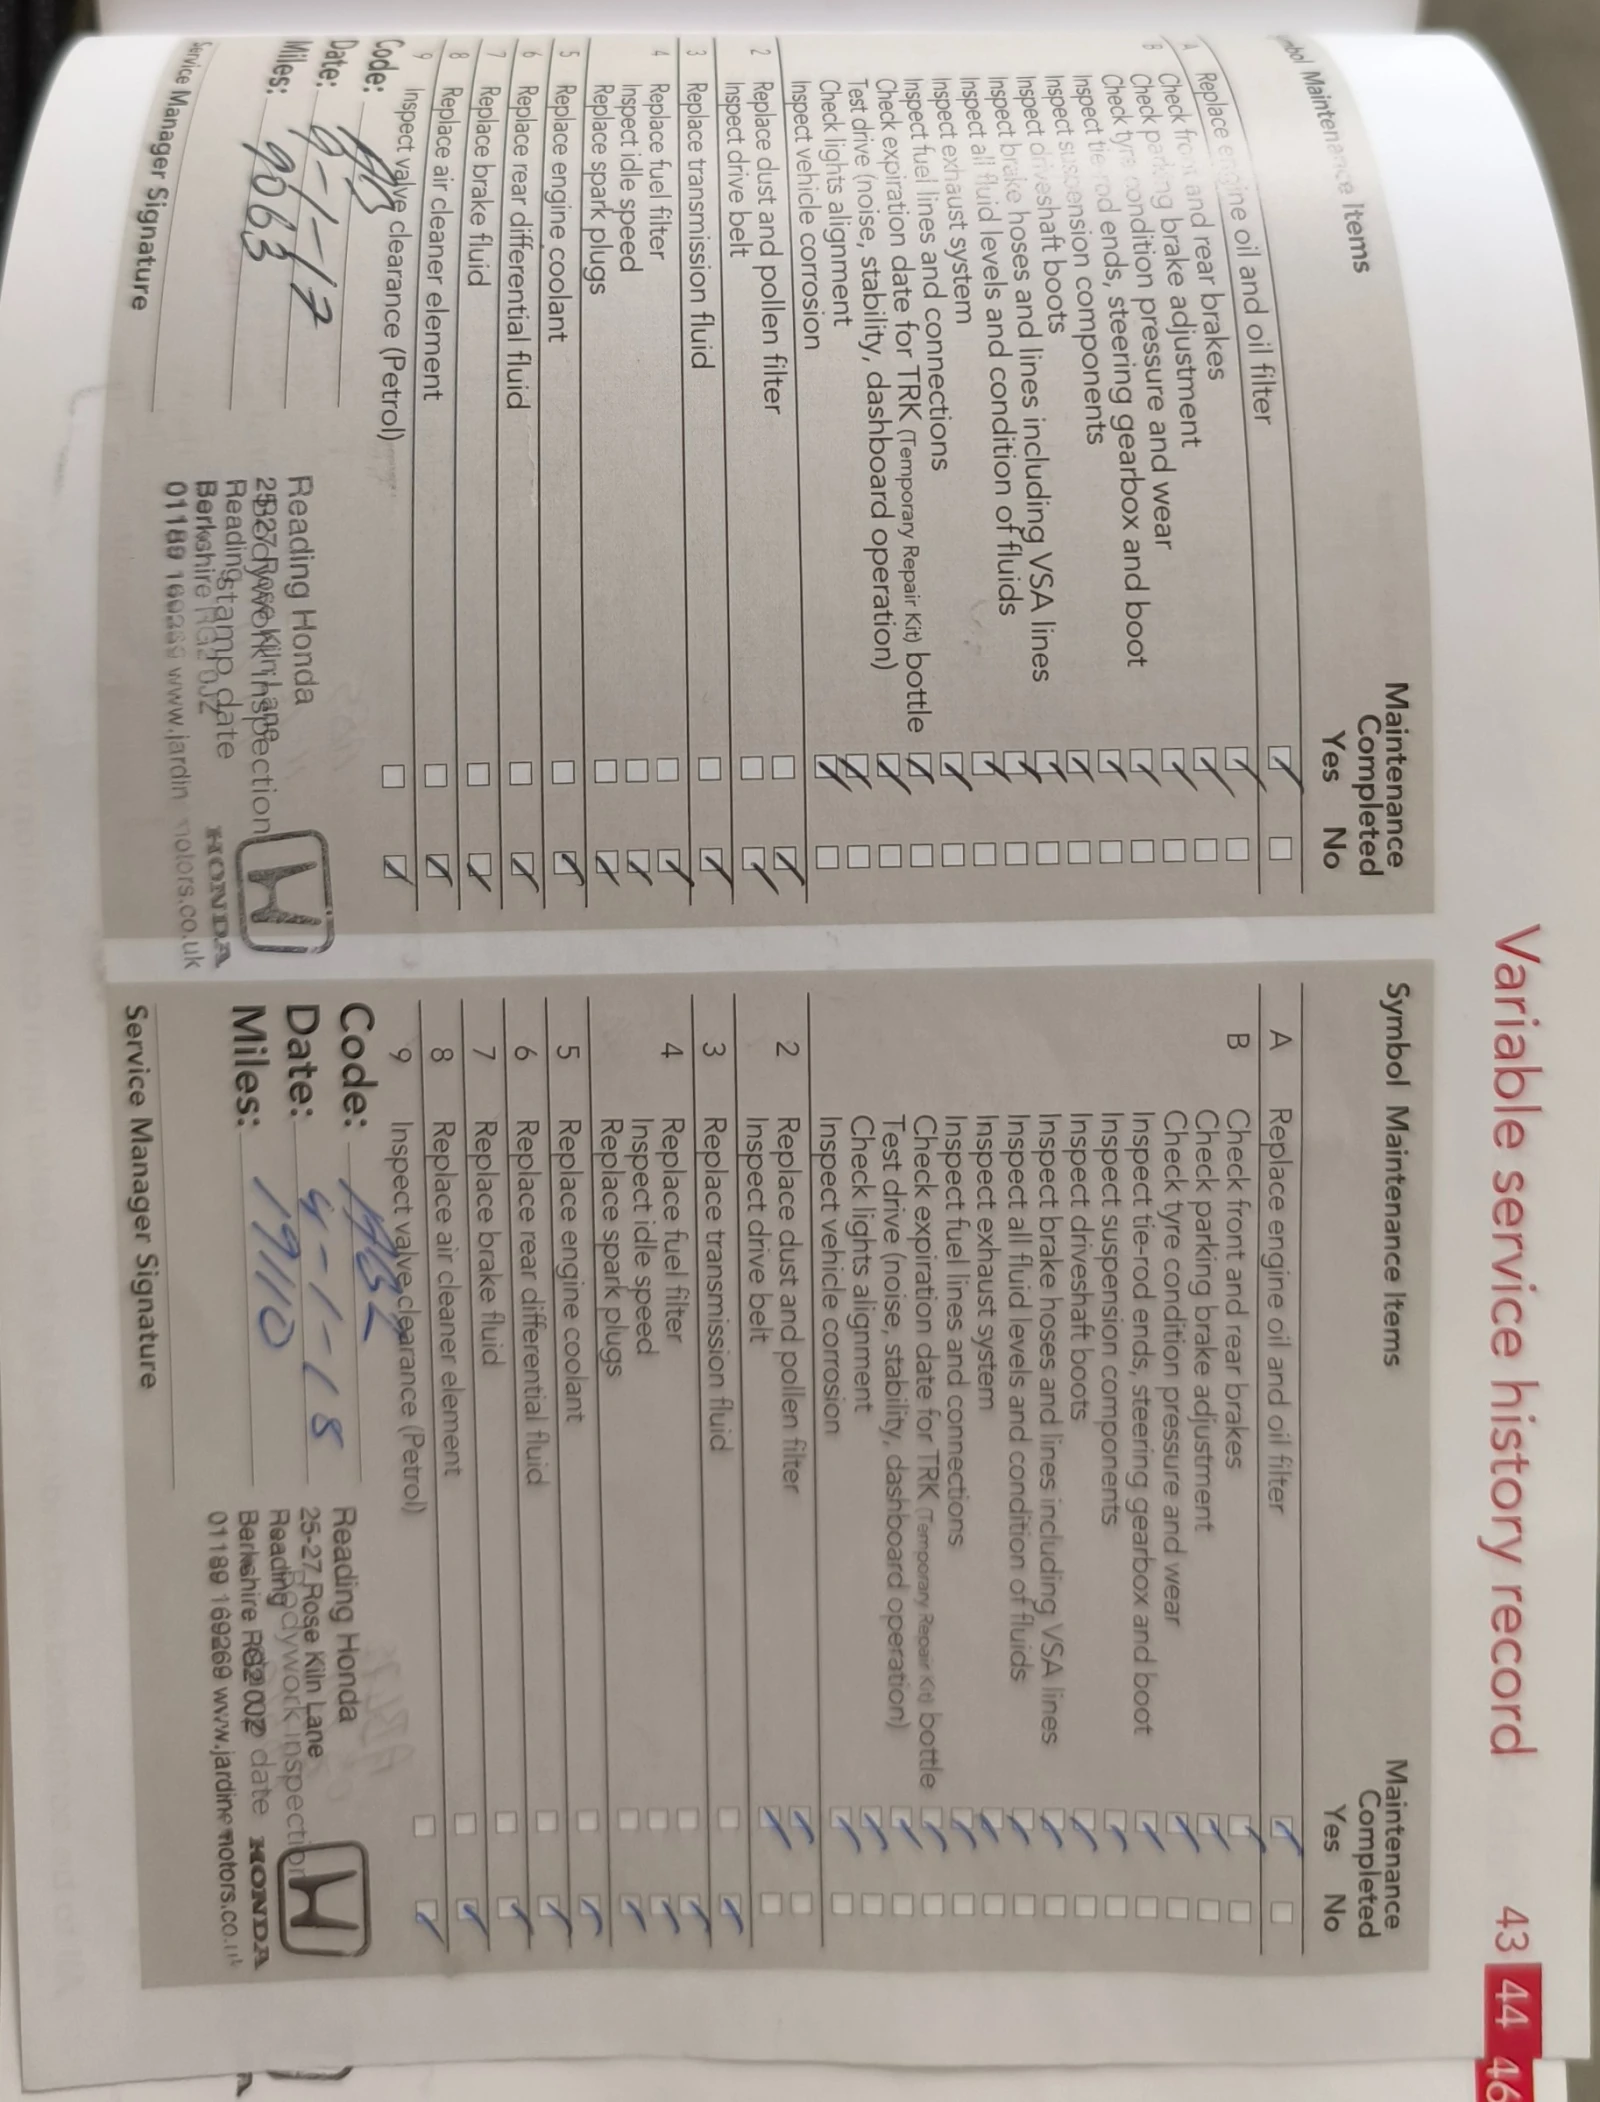 Variable service history record 43 44 46
Symbol Maintenance Items
Maintenance
Completed
Yes No
A Replace engine oil and oil filter
B Check front and rear brakes
Check parking brake adjustment
Check tyre condition pressure and wear
Check tie-rod ends, steering gearbox and boot
Inspect suspension components
Inspect driveshaft boots
Inspect brake hoses and lines including VSA lines
Inspect all fluid levels and condition of fluids
Inspect exhaust system
Inspect fuel lines and connections
Check expiration date for TRK (Temporary Repair Kit) bottle
Test drive (noise, stability, dashboard operation)
Check lights alignment
Inspect vehicle corrosion
2 Replace dust and pollen filter
Inspect drive belt
3 Replace transmission fluid
4 Replace fuel filter
Inspect idle speed
Replace spark plugs
5 Replace engine coolant
6 Replace rear differential fluid
7 Replace brake fluid
8 Replace air cleaner element
9 Inspect valve clearance (Petrol)
Code:
Date: -1-17
Miles: 9063
Service Manager Signature
Reading Honda
Rose Kiln Lane
Bodywork inspection
Reading
stamp date
Berkshire RG2 0JZ
01189 169269 www.jardinemotors.co.uk
HONDA
Symbol Maintenance Items
Maintenance
Completed
Yes No
A Replace engine oil and oil filter
B Check front and rear brakes
Check parking brake adjustment
Check tyre condition pressure and wear
Inspect tie-rod ends, steering gearbox and boot
Inspect suspension components
Inspect driveshaft boots
Inspect brake hoses and lines including VSA lines
Inspect all fluid levels and condition of fluids
Inspect exhaust system
Inspect fuel lines and connections
Check expiration date for TRK (Temporary Repair Kit) bottle
Test drive (noise, stability, dashboard operation)
Check lights alignment
Inspect vehicle corrosion
2 Replace dust and pollen filter
Inspect drive belt
3 Replace transmission fluid
4 Replace fuel filter
Inspect idle speed
Replace spark plugs
5 Replace engine coolant
6 Replace rear differential fluid
7 Replace brake fluid
8 Replace air cleaner element
9 Inspect valve clearance (Petrol)
Code: AB2
Date: 4-1-18
Miles: 19110
Service Manager Signature
Reading Honda
25-27 Rose Kiln Lane
Bodywork inspection
Reading
date
Berkshire RG2 0JZ
01189 169269 www.jardinemotors.co.uk
HONDA